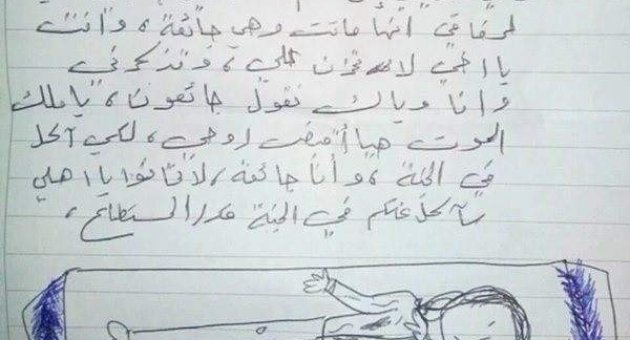 لرفاقي أنها ماتت وهي جائعة، وانت
يا اخي لا تحزن علي، وتذكرني
وانا وياك نقول جائعون، يا ملك
الموت هيا أقبض روحي، لكي آكل
في الجنة، وأنا جائعة، لا تخافوا يا اهلي
سآكل عنكم في الجنة قدر المستطاع،